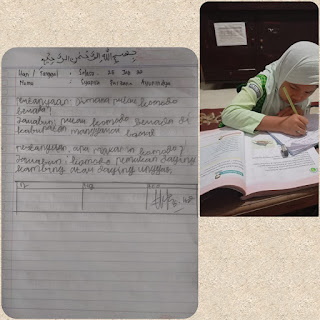 بسم الله الرحمن الرحيم
Hari / Tanggal : Selasa, 25
Nama :
Pertanyaan dimana pulau komodo
berada?
Jawaban pulau komodo berada di
kabupaten manggarai barat
Pertanyaan apa makanan komodo?
Jawaban: komodo pemakan daging
kambing atau daging unggas